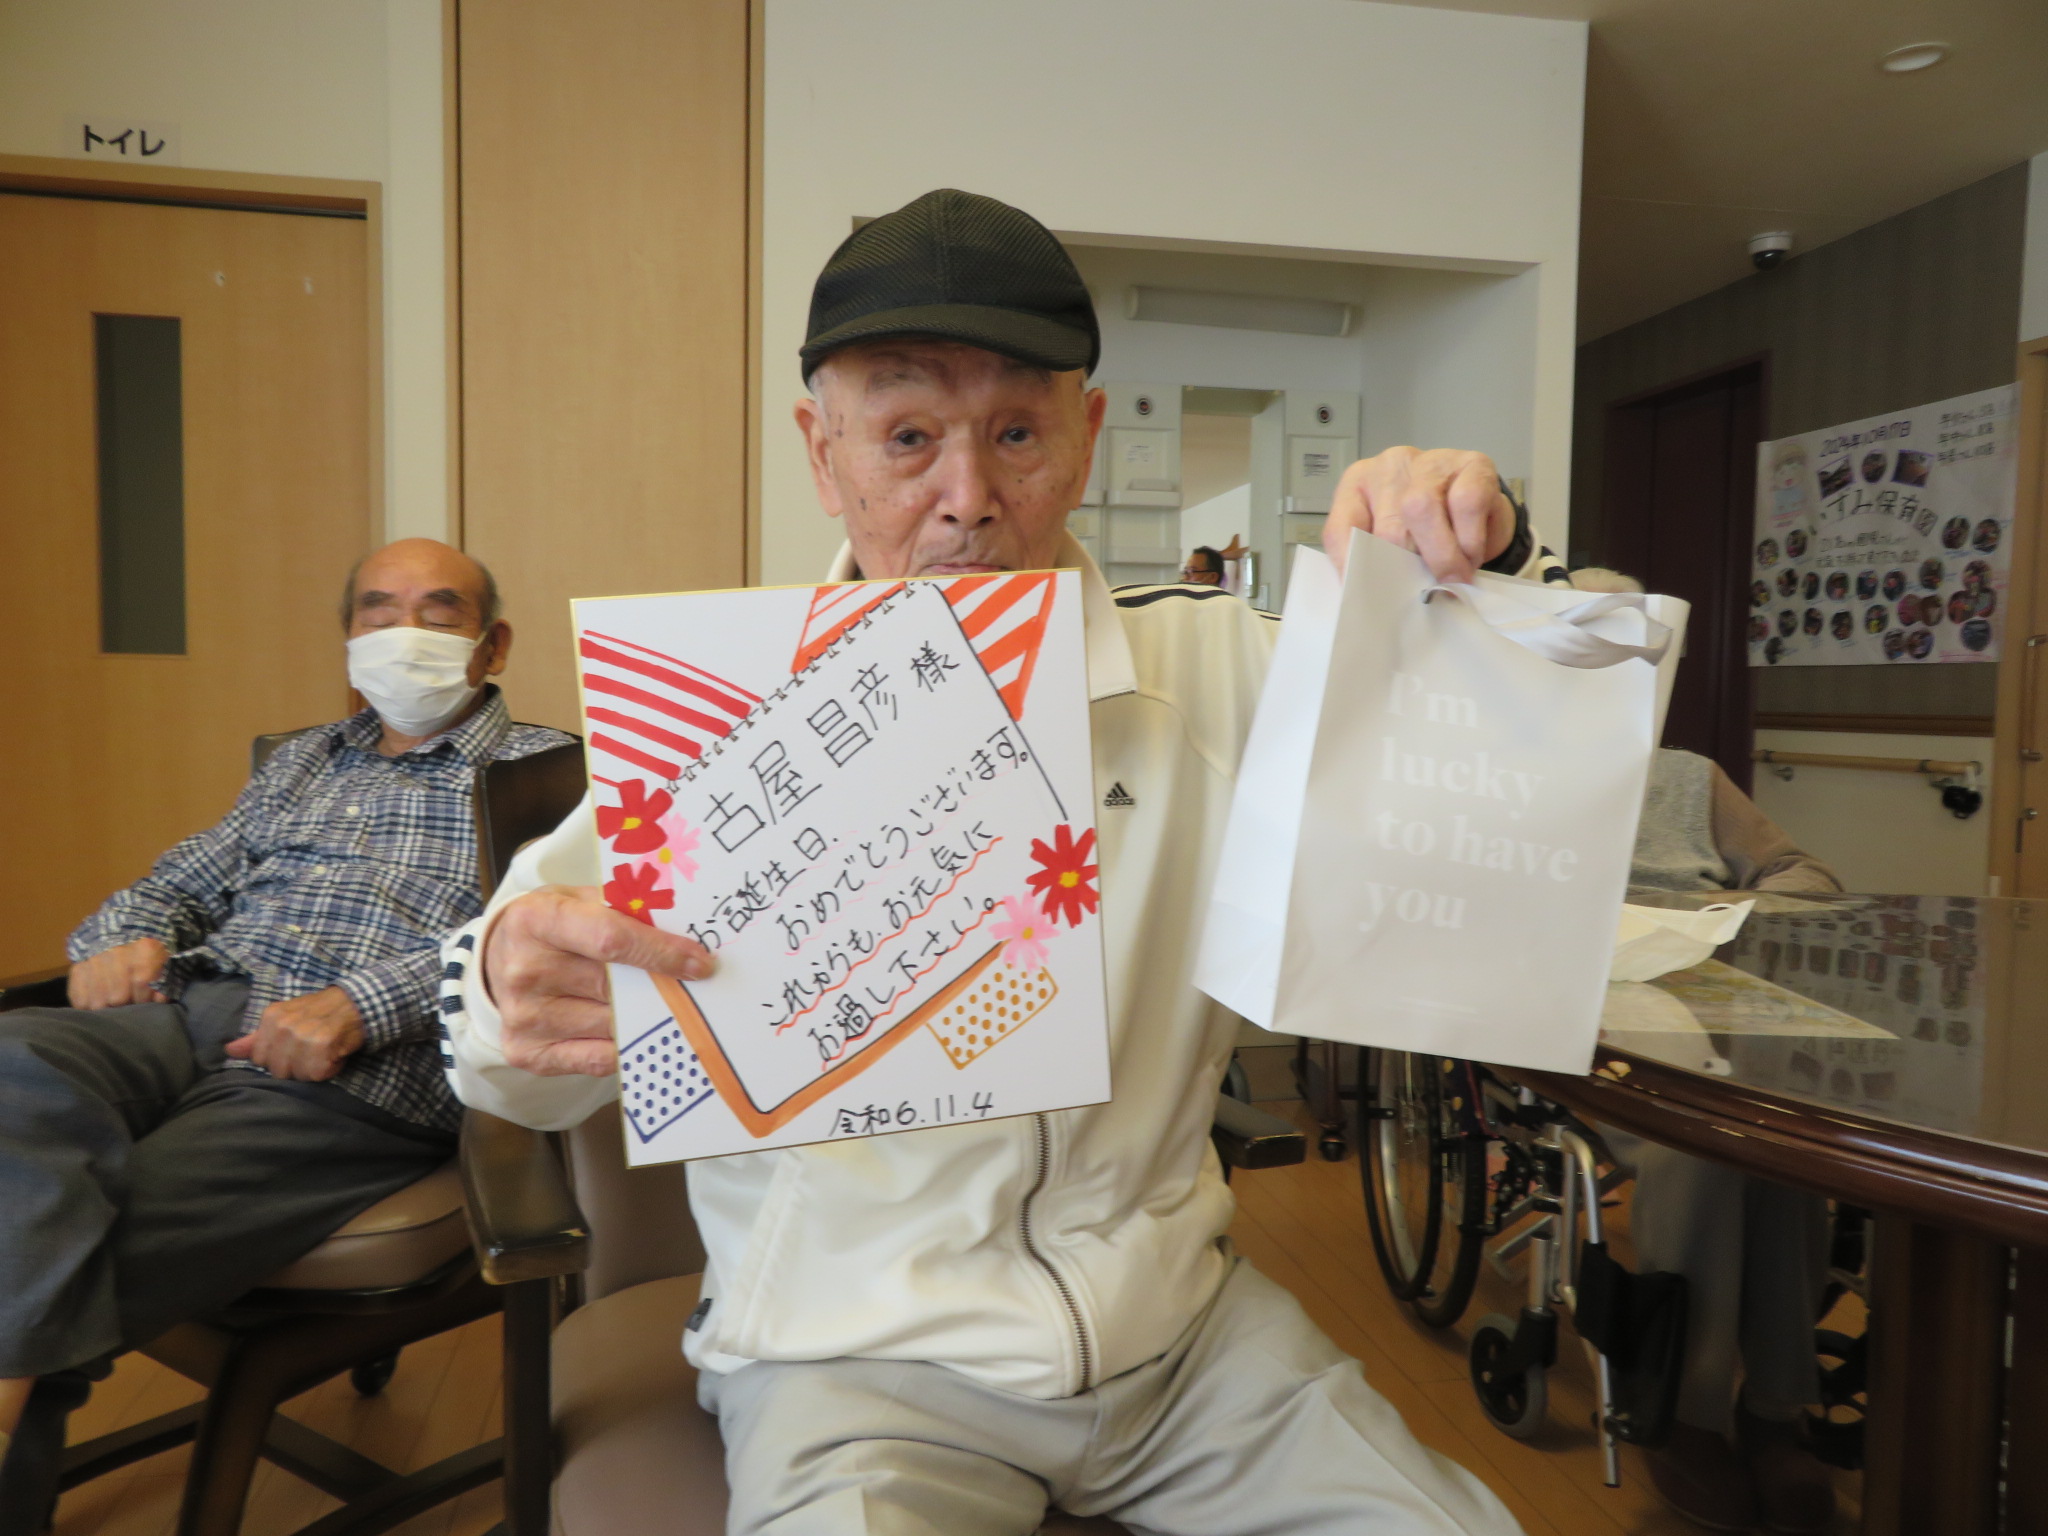 トイレ
古屋 昌彦 様
お誕生日、
おめでとうございます。
これからも、お元気に
お過し下さい。
令和6.11.4
adidas
I'm
lucky
to have
you
2024年10月17日
いずみ保育園